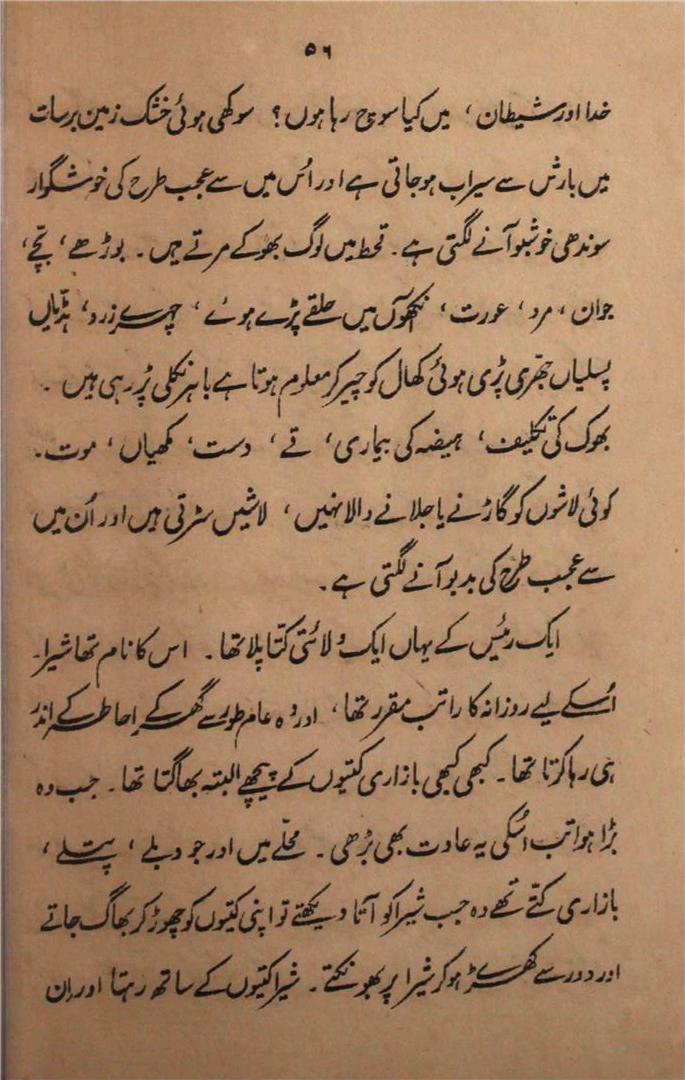 ۵۶
خدا اور شیطان، میں کیا سوچ رہا ہوں؟ سوکھی ہوئی خشک زمین برسات
میں بارش سے سیراب ہو جاتی ہے اور اُس میں سے عجب طرح کی خوشگوار
سوندھی خوشبو آنے لگتی ہے۔ قحط میں لوگ بھوکے مرتے ہیں۔ بوڑھے، بچّے،
جوان، مرد، عورت، آنکھوں میں حلقے پڑے ہوئے، چہرے زرد، ہڈّیاں
پسلیاں جھّری پڑی ہوئی کھال کو چیر کر معلوم ہوتا ہے باہر نکلی پڑ رہی ہیں۔
بھوک کی تکلیف، ہیضہ کی بیماری، قے، دست، مکھیاں، موت۔
کوئی لاشوں کو گاڑنے یا جلانے والا نہیں، لاشیں سڑتی ہیں اور اُن میں
سے عجب طرح کی بدبو آنے لگتی ہے۔
ایک رئیس کے یہاں ایک ولائتی کتا پلا تھا۔ اس کا نام تھا شیرا۔
اُسکے لیے روزانہ کا راتب مقرر تھا، اور وہ عام طور سے گھر کے احاطہ کے اندر
ہی رہا کرتا تھا۔ کبھی کبھی بازاری کتیوں کے پیچھے البتہ بھاگتا تھا۔ جب وہ
بڑا ہوا تب اُسکی یہ عادت بھی بڑھی۔ محلّے میں اور جو دبلے، پتلے،
بازاری کتے تھے وہ جب شیرا کو آتا دیکھتے تو اپنی کتیوں کو چھوڑ کر بھاگ جاتے
اور دور سے کھڑے ہو کر شیرا پر بھونکتے۔ شیرا کتیوں کے ساتھ رہتا اور اِن